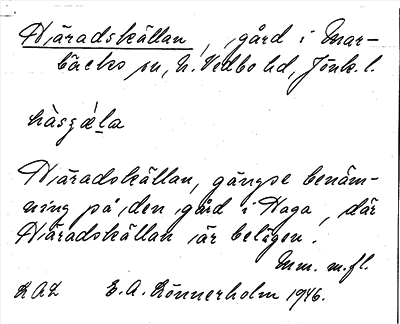 Häradskällan, gård i Mar-
bäcks sn, N. Vedbo hd, Jönk. l.
hàsʒǽla
Häradskällan, gängse benäm-
ning på den gård i Haga, där
Häradskällan är belägen.
Mm. m.fl.
E. A. Rönnerholm 1946.